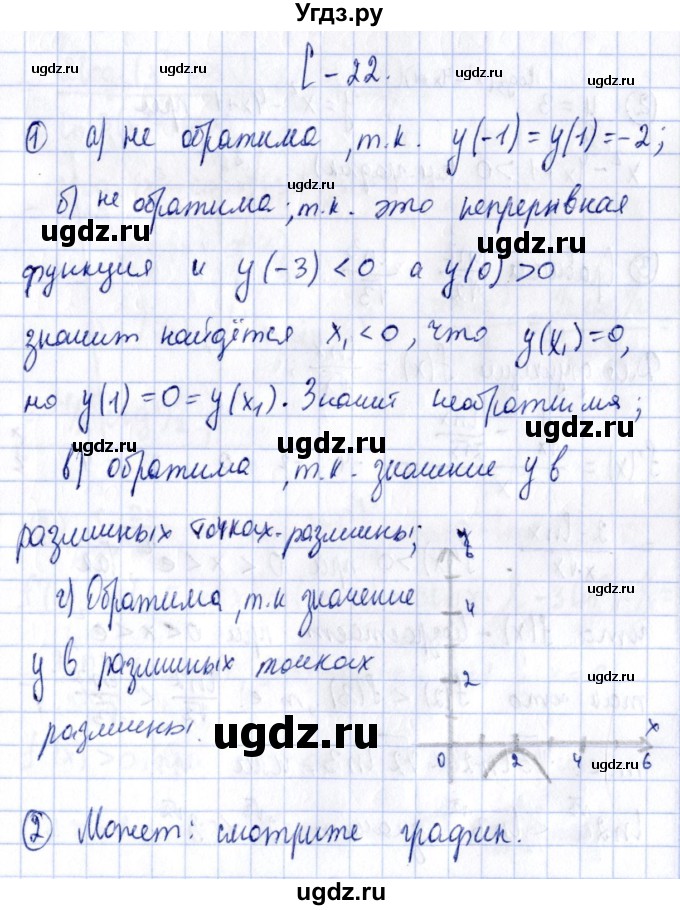 Угдз.ру
С-22.
① а) не обратима, т.к. y(-1) = y(1) = -2;
б) не обратима; т.к. это непрерывная
функция и y(-3) < 0 а y(0) > 0
значит найдётся x₁ < 0, что y(x₁) = 0,
но y(1) = 0 = y(x₁). Значит необратимя;
в) обратима, т.к. значение y в
различных точках различны;
г) Обратима, т.к значение
y в различных точках
различны.
6
4
2
x
0 2 4 6
② Может: смотрите график.
ugdz.ru ugdz.ru ugdz.ru
ugdz.ru
ugdz.ru
ugdz.ru ugdz.ru
ugdz.ru
ugdz.ru ugdz.ru ugdz.ru
ugdz.ru
ugdz.ru
ugdz.ru
ugdz.ru
ugdz.ru ugdz.ru ugdz.ru
ugdz.ru